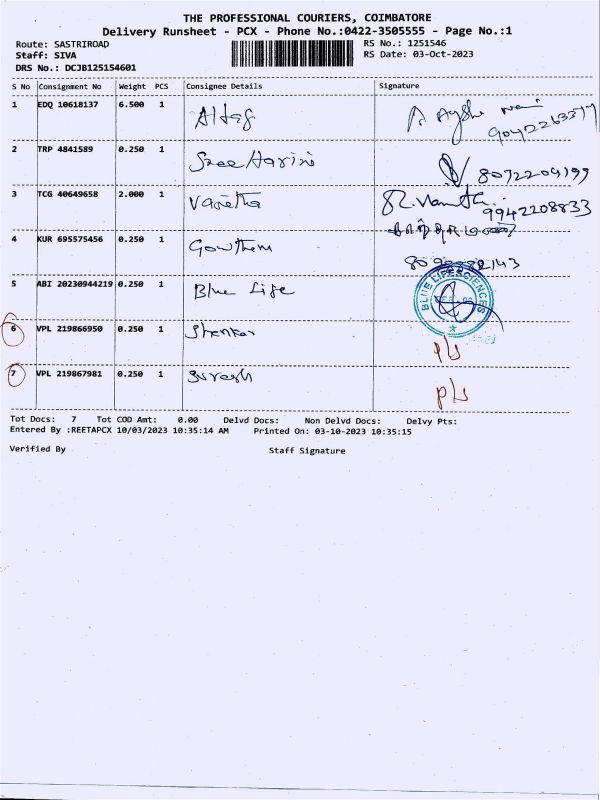 THE PROFESSIONAL COURIERS, COIMBATORE
Delivery Runsheet - PCX - Phone No.:0422-3505555 - Page No.:1
Route: SASTRIROAD
Staff: SIVA
DRS No.: DCJB125154601
RS No.: 1251546
RS Date: 03-Oct-2023
S No Consignment No Weight PCS Consignee Details Signature
1 EDQ 10618137 6.500 1 Altaf
2 TRP 4841589 0.250 1 Sree Harini 8072204199
3 TCG 40649658 2.000 1 Vanitha 9942208833
4 KUR 695575456 0.250 1 Gowthem
5 ABI 20230944219 0.250 1 Blue Life BLUE LIFESCIENCES
6 VPL 219866950 0.250 1 Shankar
7 VPL 219867981 0.250 1 Suresh
Tot Docs: 7 Tot COD Amt: 0.00 Delvd Docs: Non Delvd Docs: Delvy Pts:
Entered By :REETAPCX 10/03/2023 10:35:14 AM Printed On: 03-10-2023 10:35:15
Verified By Staff Signature